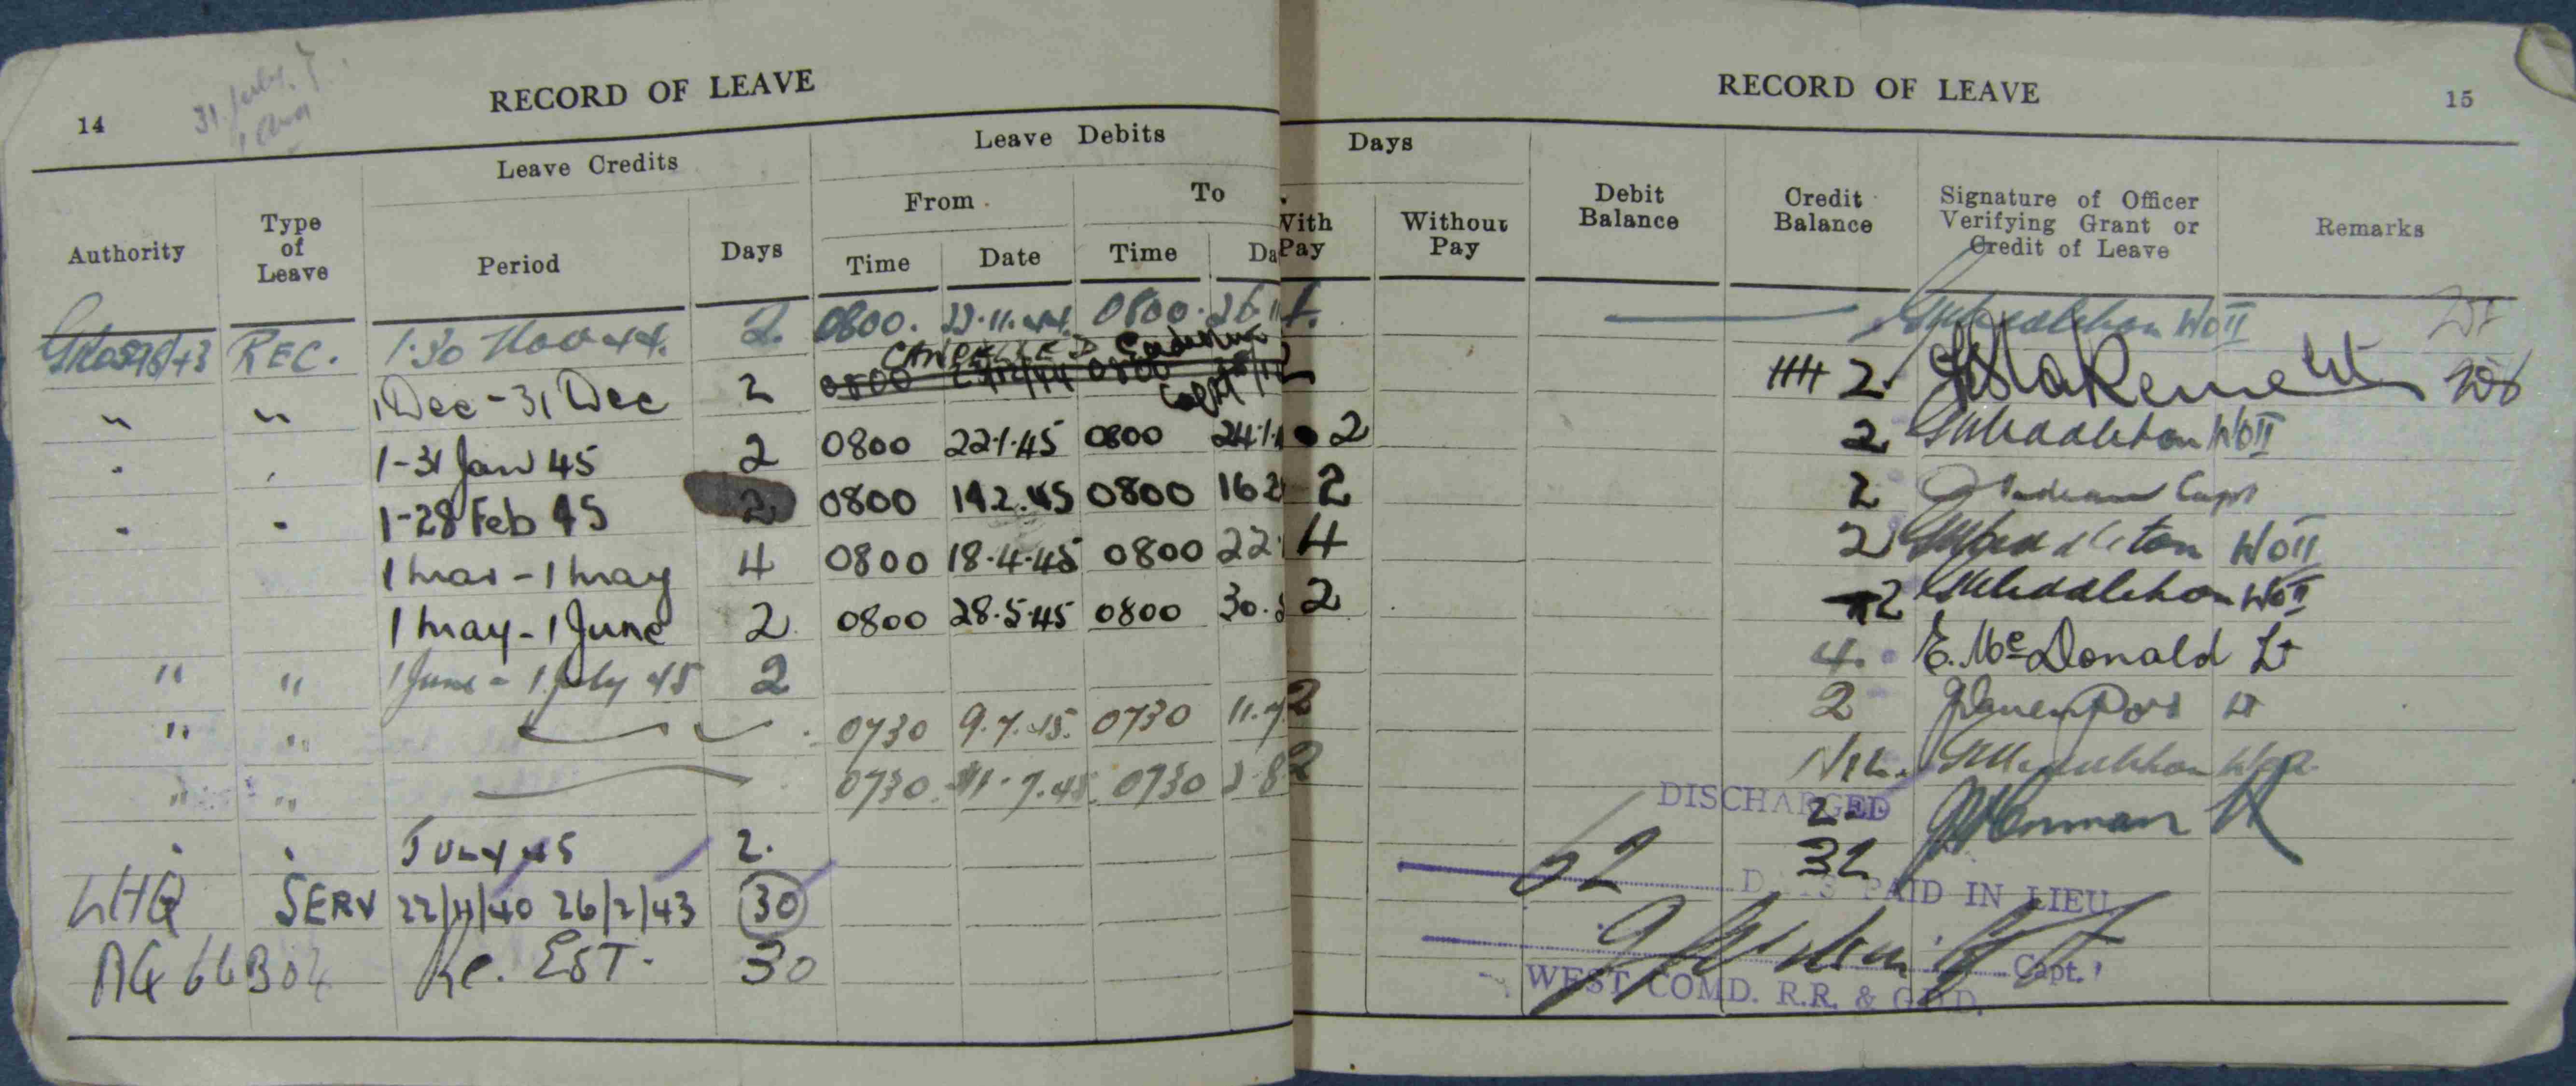 14 RECORD OF LEAVE
31 July.
Leave Credits Leave Debits
Authority Type of Leave Period Days From To
Time Date Time Da
REC. 1-30 Nov 44. 2. 0800. 22.11.44. 0800. 26.11
CANCELLED
" " 1 Dec - 31 Dec 2 0800 0800
Capt
1-31 Jan 45 2 0800 22.1.45 0800 24.1.
1-28 Feb 45 2 0800 14.2.45 0800 16 2
1 Mar - 1 May 4 0800 18.4.45 0800 22
1 May - 1 June 2 0800 28.5.45 0800 30.5
" " 1 June - 1 July 45 2
" " 0730 9.7.45. 0730 11.7
" " 0730 0730 2.8
July 45 2.
LHQ SERV 22/11/40 26/2/43 30
AG 66B04 Re. EST. 30
RECORD OF LEAVE 15
Days
With Pay Without Pay Debit Balance Credit Balance Signature of Officer Verifying Grant or Credit of Leave Remarks
4. Middleton WOII
2 2 Lt
2 2 Middleton WOII
2 2 Capt
4 2 Middleton WOII
2 2 Middleton WOII
4. E. McDonald Lt
2 2 Lt
2 Nil. Middleton WO2
DISCHARGED 2 Lt
62 32
DAYS PAID IN LIEU
Capt.
WEST COMD. R.R. & G.D.D.